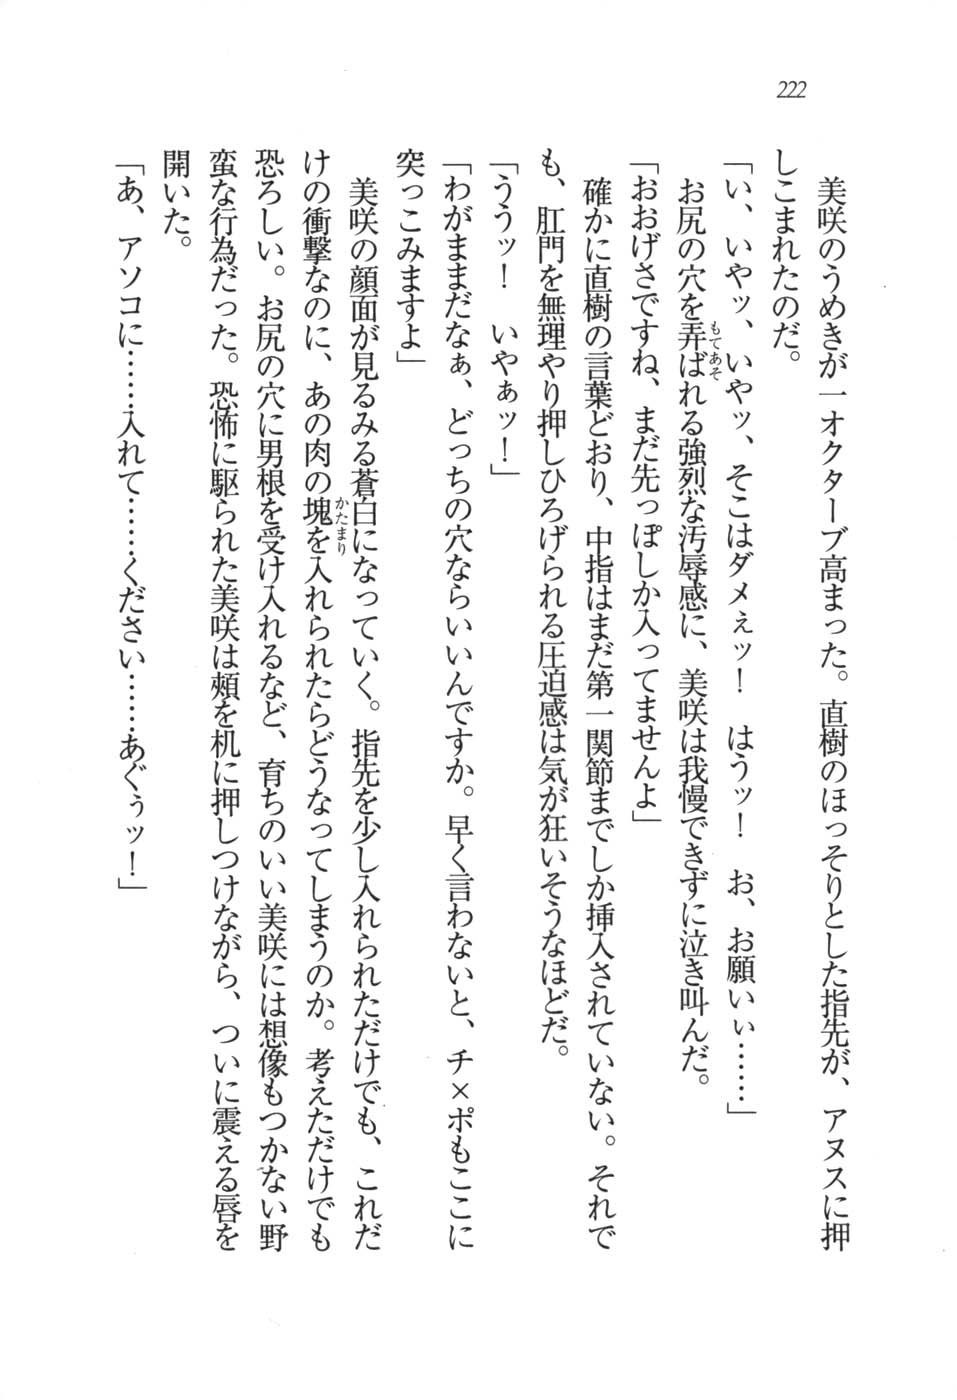 222
美咲のうめきが一オクターブ高まった。直樹のほっそりとした指先が、アヌスに押
しこまれたのだ。
「い、いやッ、いやッ、そこはダメぇッ！　はうッ！　お、お願いぃ……」
もてあそ
お尻の穴を弄ばれる強烈な汚辱感に、美咲は我慢できずに泣き叫んだ。
「おおげさですね、まだ先っぽしか入ってませんよ」
確かに直樹の言葉どおり、中指はまだ第一関節までしか挿入されていない。それで
も、肛門を無理やり押しひろげられる圧迫感は気が狂いそうなほどだ。
「ううッ！　いやぁッ！」
「わがままだなぁ、どっちの穴ならいいんですか。早く言わないと、チ×ポもここに
突っこみますよ」
美咲の顔面が見るみる蒼白になっていく。指先を少し入れられただけでも、これだ
かたまり
けの衝撃なのに、あの肉の塊を入れられたらどうなってしまうのか。考えただけでも
恐ろしい。お尻の穴に男根を受け入れるなど、育ちのいい美咲には想像もつかない野
蛮な行為だった。恐怖に駆られた美咲は頰を机に押しつけながら、ついに震える唇を
開いた。
「あ、アソコに……入れて……ください……あぐぅッ！」